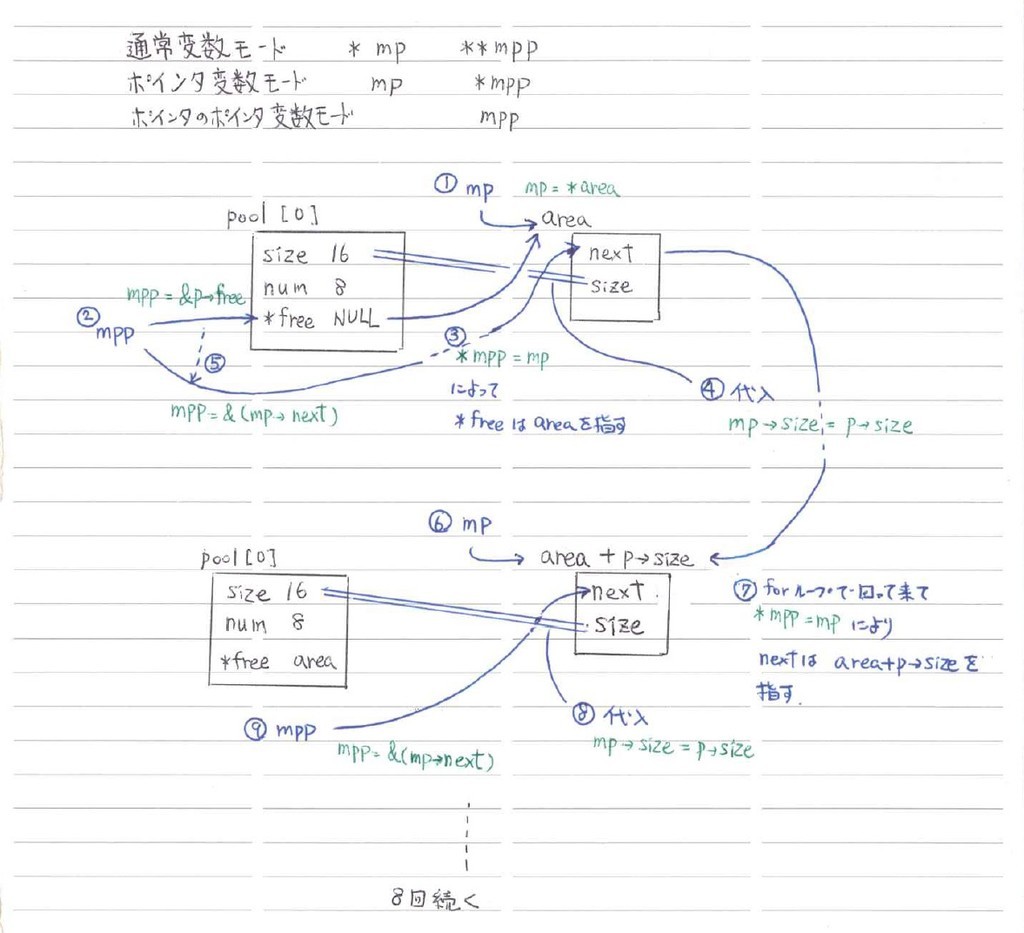 通常変数モード * mp **mpp
ポインタ変数モード mp *mpp
ポインタのポインタ変数モード mpp
① mp mp = *area
area
pool [0]
size 16
num 8
*free NULL
next
size
mpp = &p→free
② mpp
⑤
mpp = &(mp→next)
③
*mpp = mp
によって
*freeはareaを指す
④ 代入
mp→size = p→size
⑥ mp
area + p→size
pool [0]
size 16
num 8
*free area
next
size
⑦ forループで回って来て
*mpp = mp により
nextは area+p→sizeを
指す.
⑧ 代入
mp→size = p→size
⑨ mpp
mpp = &(mp→next)
8回続く